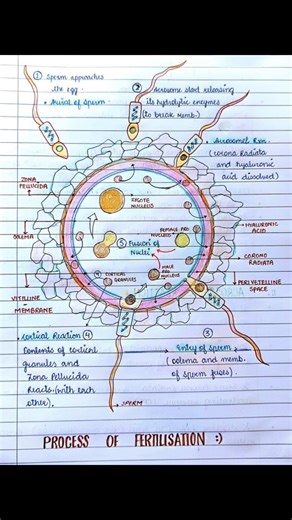 ① Sperm approaches
the egg.
• Arival of Sperm
② Acrosome start releasing
its hydrolytic enzymes
(to break memb.)
• Acrosomal Rxn.
(corona Radiata
and hyaluronic
acid dissolved)
ZONA
PELLUCIDA
OOLEMA
VITELLINE
MEMBRANE
ZYGOTE
NUCLEUS
FEMALE PRO
NUCLEUS
⑤ Fusion of
Nuclei
④ CORTICAL
GRANULES
MALE
PRO
NUCLEUS
HYALURONIC
ACID
CORONO
RADIATA
PERIVITELLINE
SPACE
• Cortical Reaction ④
Contents of cortical
granules and
Zona Pellucida
Reacts (with each
other).
③
Entry of sperm
(oolema and memb.
of sperm fuses).
SPERM
PROCESS OF FERTILISATION :)